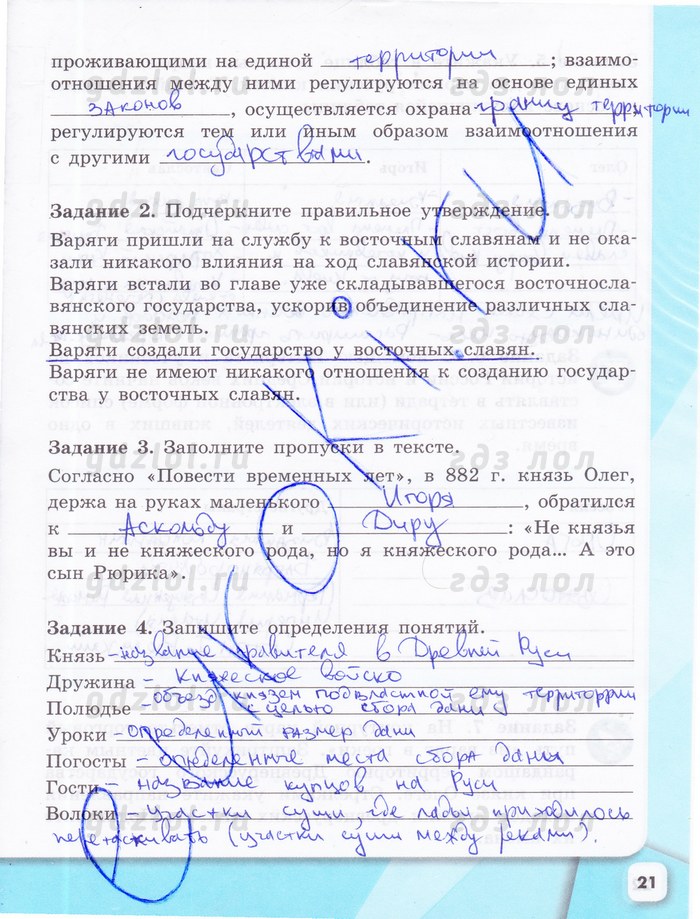 проживающими на единой территории; взаимо-
отношения между ними регулируются на основе единых
законов, осуществляется охрана границ территории
регулируются тем или иным образом взаимоотношения
с другими государствами.
gdzlol.ru гдз лол
Задание 2. Подчеркните правильное утверждение.
Варяги пришли на службу к восточным славянам и не ока-
зали никакого влияния на ход славянской истории.
Варяги встали во главе уже складывавшегося восточносла-
вянского государства, ускорив объединение различных сла-
вянских земель.
Варяги создали государство у восточных славян.
Варяги не имеют никакого отношения к созданию государ-
ства у восточных славян.
Задание 3. Заполните пропуски в тексте.
Согласно «Повести временных лет», в 882 г. князь Олег,
держа на руках маленького Игоря, обратился
к Аскольду и Диру: «Не князья
вы и не княжеского рода, но я княжеского рода... А это
сын Рюрика».
Задание 4. Запишите определения понятий.
Князь – название правителя в Древней Руси
Дружина – Княжеское войско
Полюдье – объезд князем подвластной ему территории
с целью сбора дани
Уроки – Определенный размер дани
Погосты – определенные места сбора дани
Гости – название купцов на Руси
Волоки – участки суши, где ладьи приходилось
перетаскивать (участки суши между реками).
21